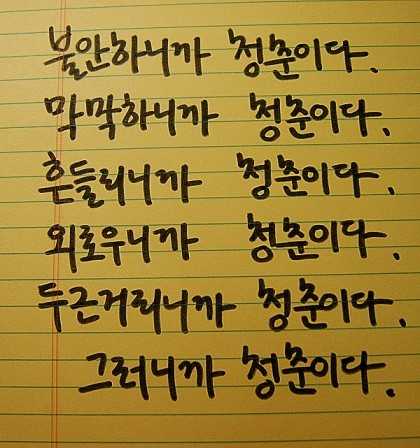 불안하니까 청춘이다.
막막하니까 청춘이다.
흔들리니까 청춘이다.
외로우니까 청춘이다.
두근거리니까 청춘이다.
그러니까 청춘이다.